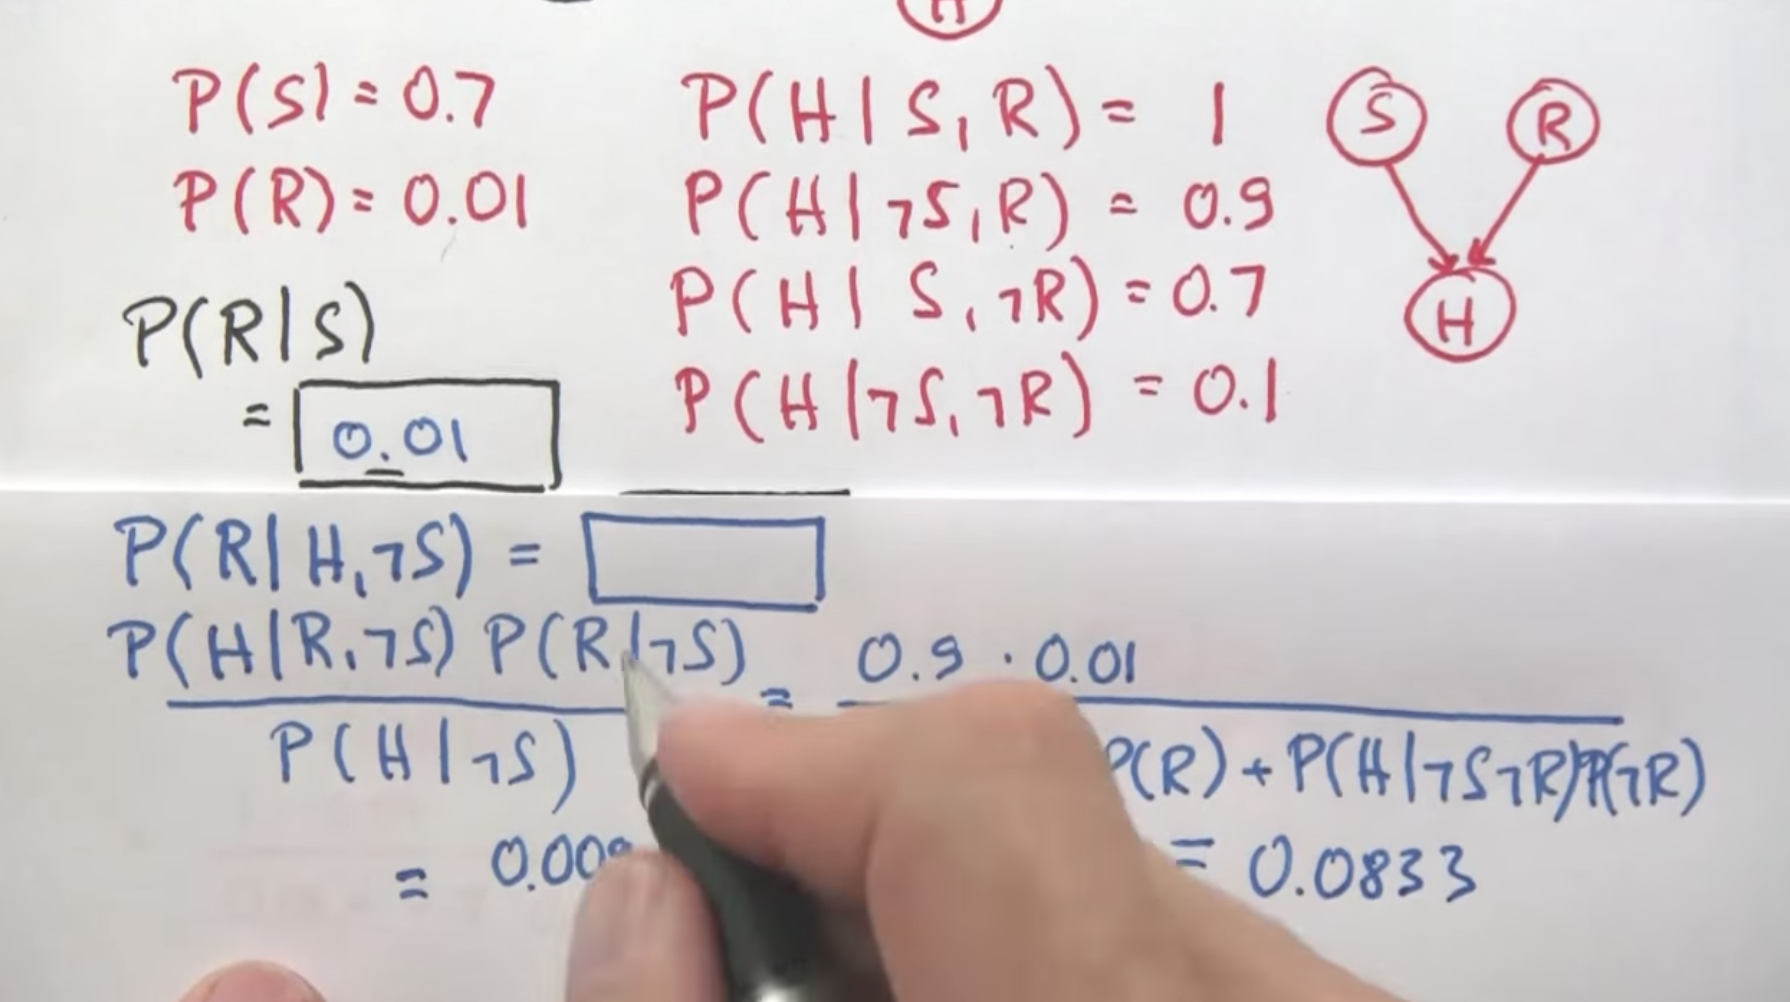 H
P(S) = 0.7
P(R) = 0.01
P(H | S, R) = 1
P(H | ¬S, R) = 0.9
P(H | S, ¬R) = 0.7
P(H | ¬S, ¬R) = 0.1
S R
H
P(R | S)
= 0.01
P(R | H, ¬S) =
P(H | R, ¬S) P(R | ¬S) = 0.9 · 0.01
P(H | ¬S) P(R) + P(H | ¬S ¬R) P(¬R)
= 0.009 = 0.0833